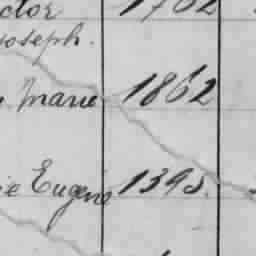 ctor 1762
Joseph.
Marie 1862
ie Eugène 1395.